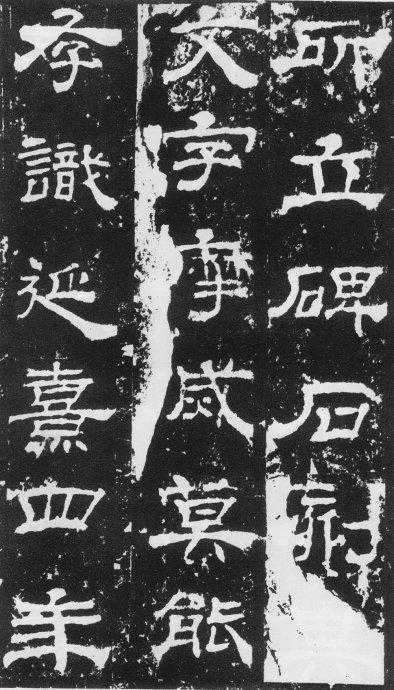 所立碑石
文字摩烕莫能
存識延熹四年